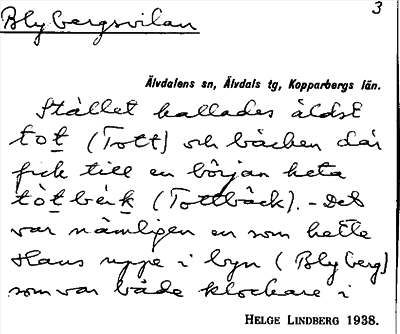 Blybergsvilan
3
Älvdalens sn, Älvdals tg, Kopparbergs län.
Stället kallades äldst
tot (Tott) och bäcken där
fick till en början heta
tòtbèrk (Tottbäck). - Det
var nämligen en som hette
Hans uppe i byn (Blyberg)
som var både klockare i
HELGE LINDBERG 1938.